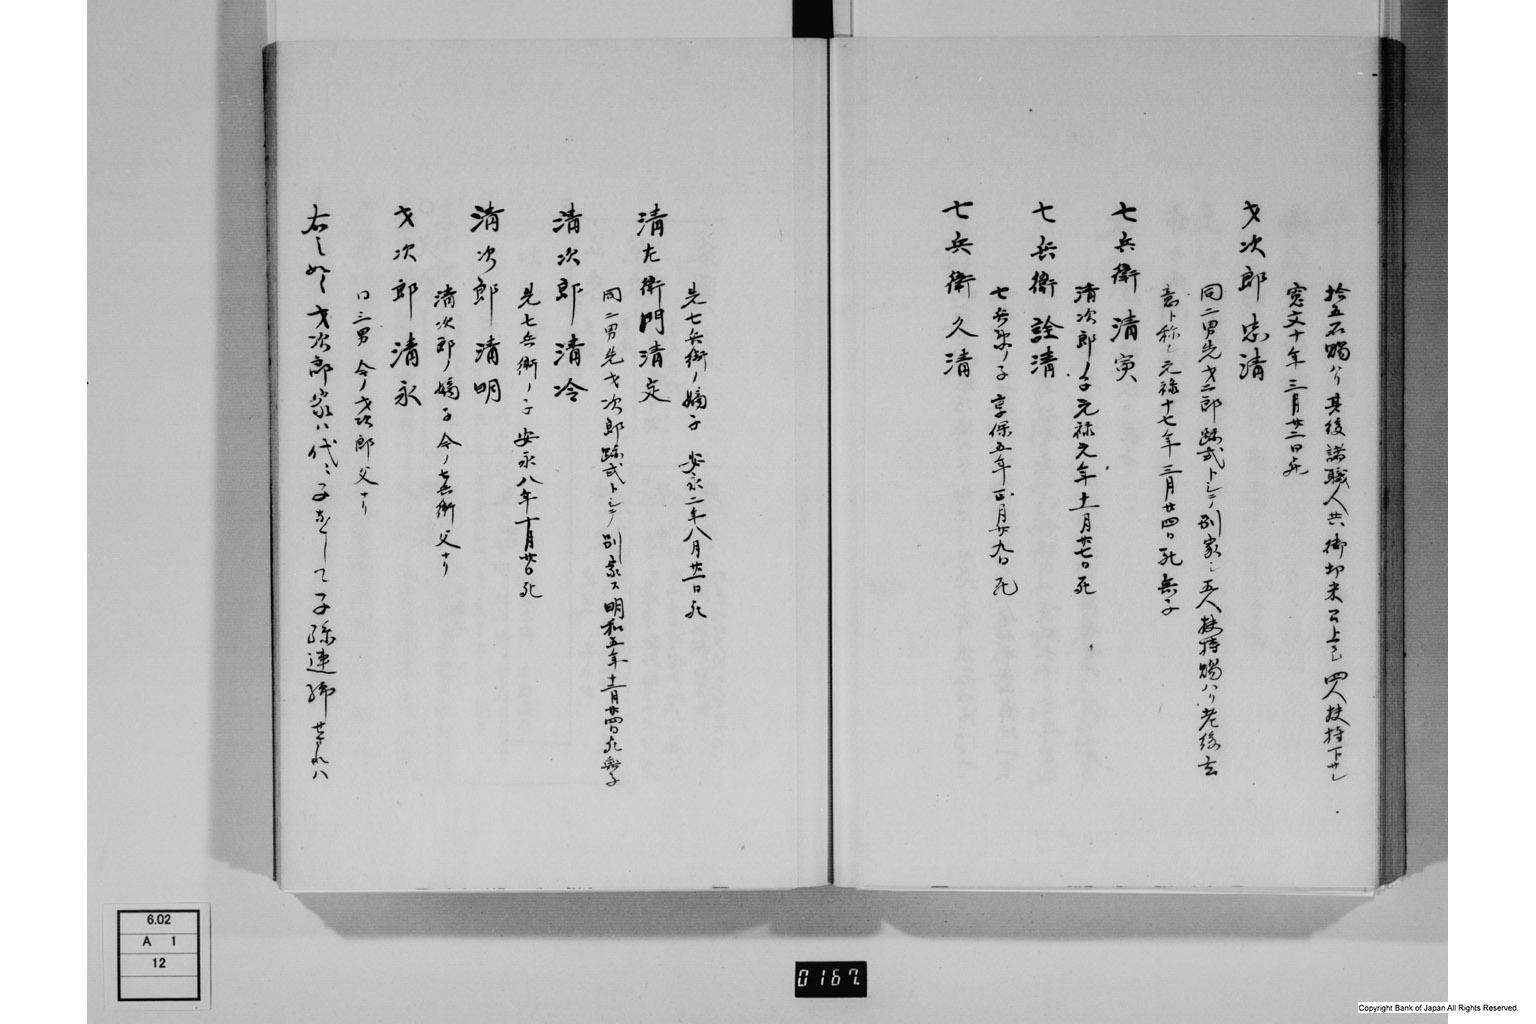 拾五石賜ハリ其後諸職人共御切米召上ラレ四人扶持下サレ
寛文十年三月廿二日死
才次郎忠清
同二男先才二郎跡式トシテ別家シ五人扶持賜ハリ老後玄
意ト称し元禄十七年三月廿四日死無子
七兵衛清寅
清次郎ノ子元禄元年十一月廿七日死
七兵衛詮清
七兵衛ノ子享保五年正月廿九日死
七兵衛久清
先七兵衛ノ嫡子安永二年八月廿一日死
清左衛門清定
同二男先才次郎跡式トシテ別家ス明和五年十二月廿四日死無子
清次郎清冷
先七兵衛ノ子安永八年十月廿日死
清次郎清明
清次郎ノ嫡子今ノ七兵衛父ナリ
才次郎清永
同三男今ノ才次郎父ナリ
右之如く才次郎家ハ代々子なして子孫連綿せされハ
6.02
A 1
12
0167.
Copyright Bank of Japan All Rights Reserved.